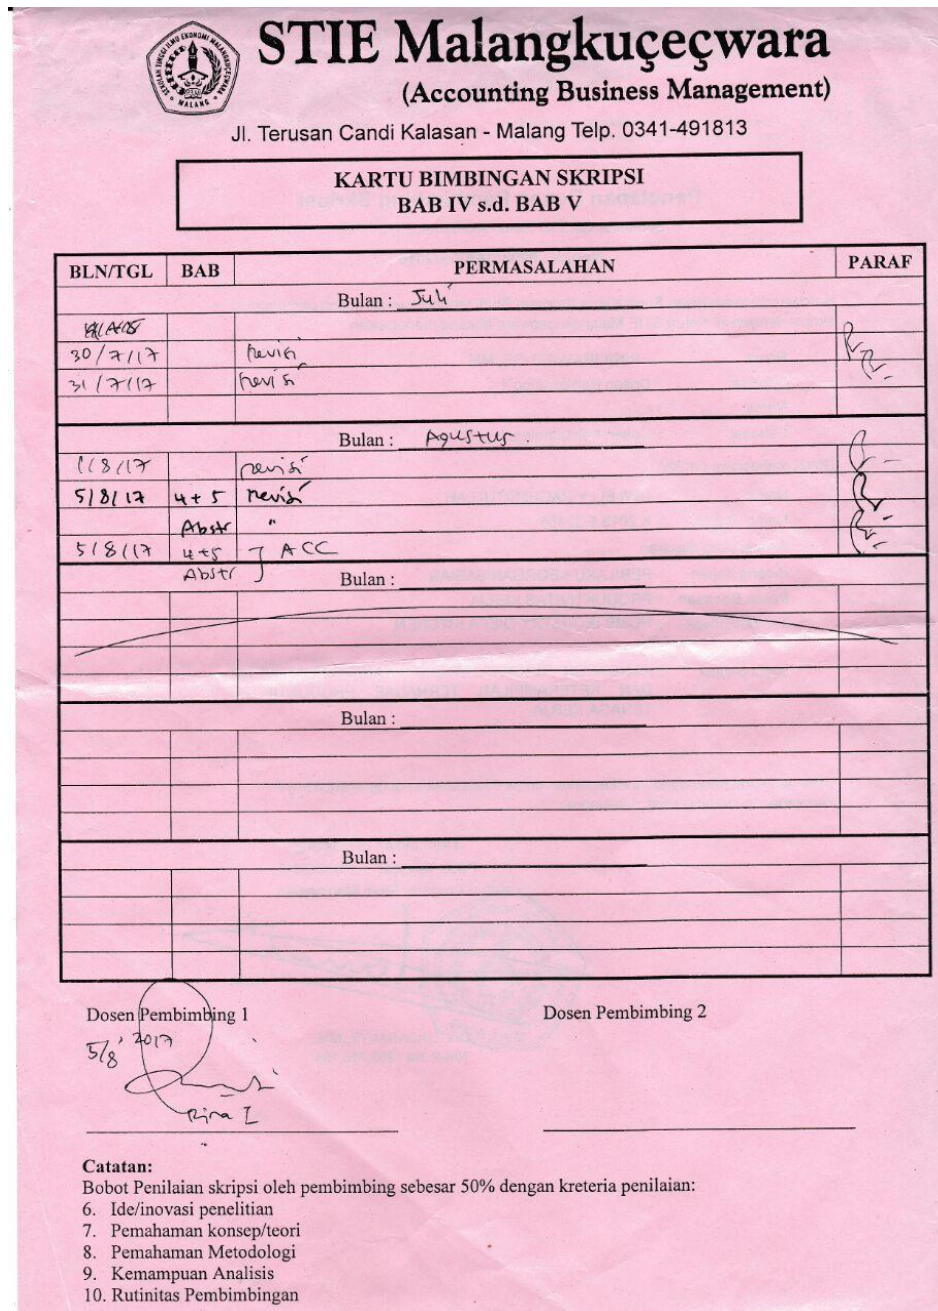 SEKOLAH TINGGI ILMU EKONOMI MALANGKUÇEÇWARA
MALANG
STIE Malangkuçeçwara
(Accounting Business Management)
Jl. Terusan Candi Kalasan - Malang Telp. 0341-491813
KARTU BIMBINGAN SKRIPSI
BAB IV s.d. BAB V
BLN/TGL BAB PERMASALAHAN PARAF
Bulan : Juli
30/7/17 revisi
31/7/17 revisi
Bulan : Agustus
1/8/17 revisi
5/8/17 4+5 revisi
Abstr "
5/8/17 4+5 ACC
Abstr
Bulan :
Bulan :
Bulan :
Dosen Pembimbing 1 Dosen Pembimbing 2
5/8 2017
Rina I
Catatan:
Bobot Penilaian skripsi oleh pembimbing sebesar 50% dengan kreteria penilaian:
6. Ide/inovasi penelitian
7. Pemahaman konsep/teori
8. Pemahaman Metodologi
9. Kemampuan Analisis
10. Rutinitas Pembimbingan